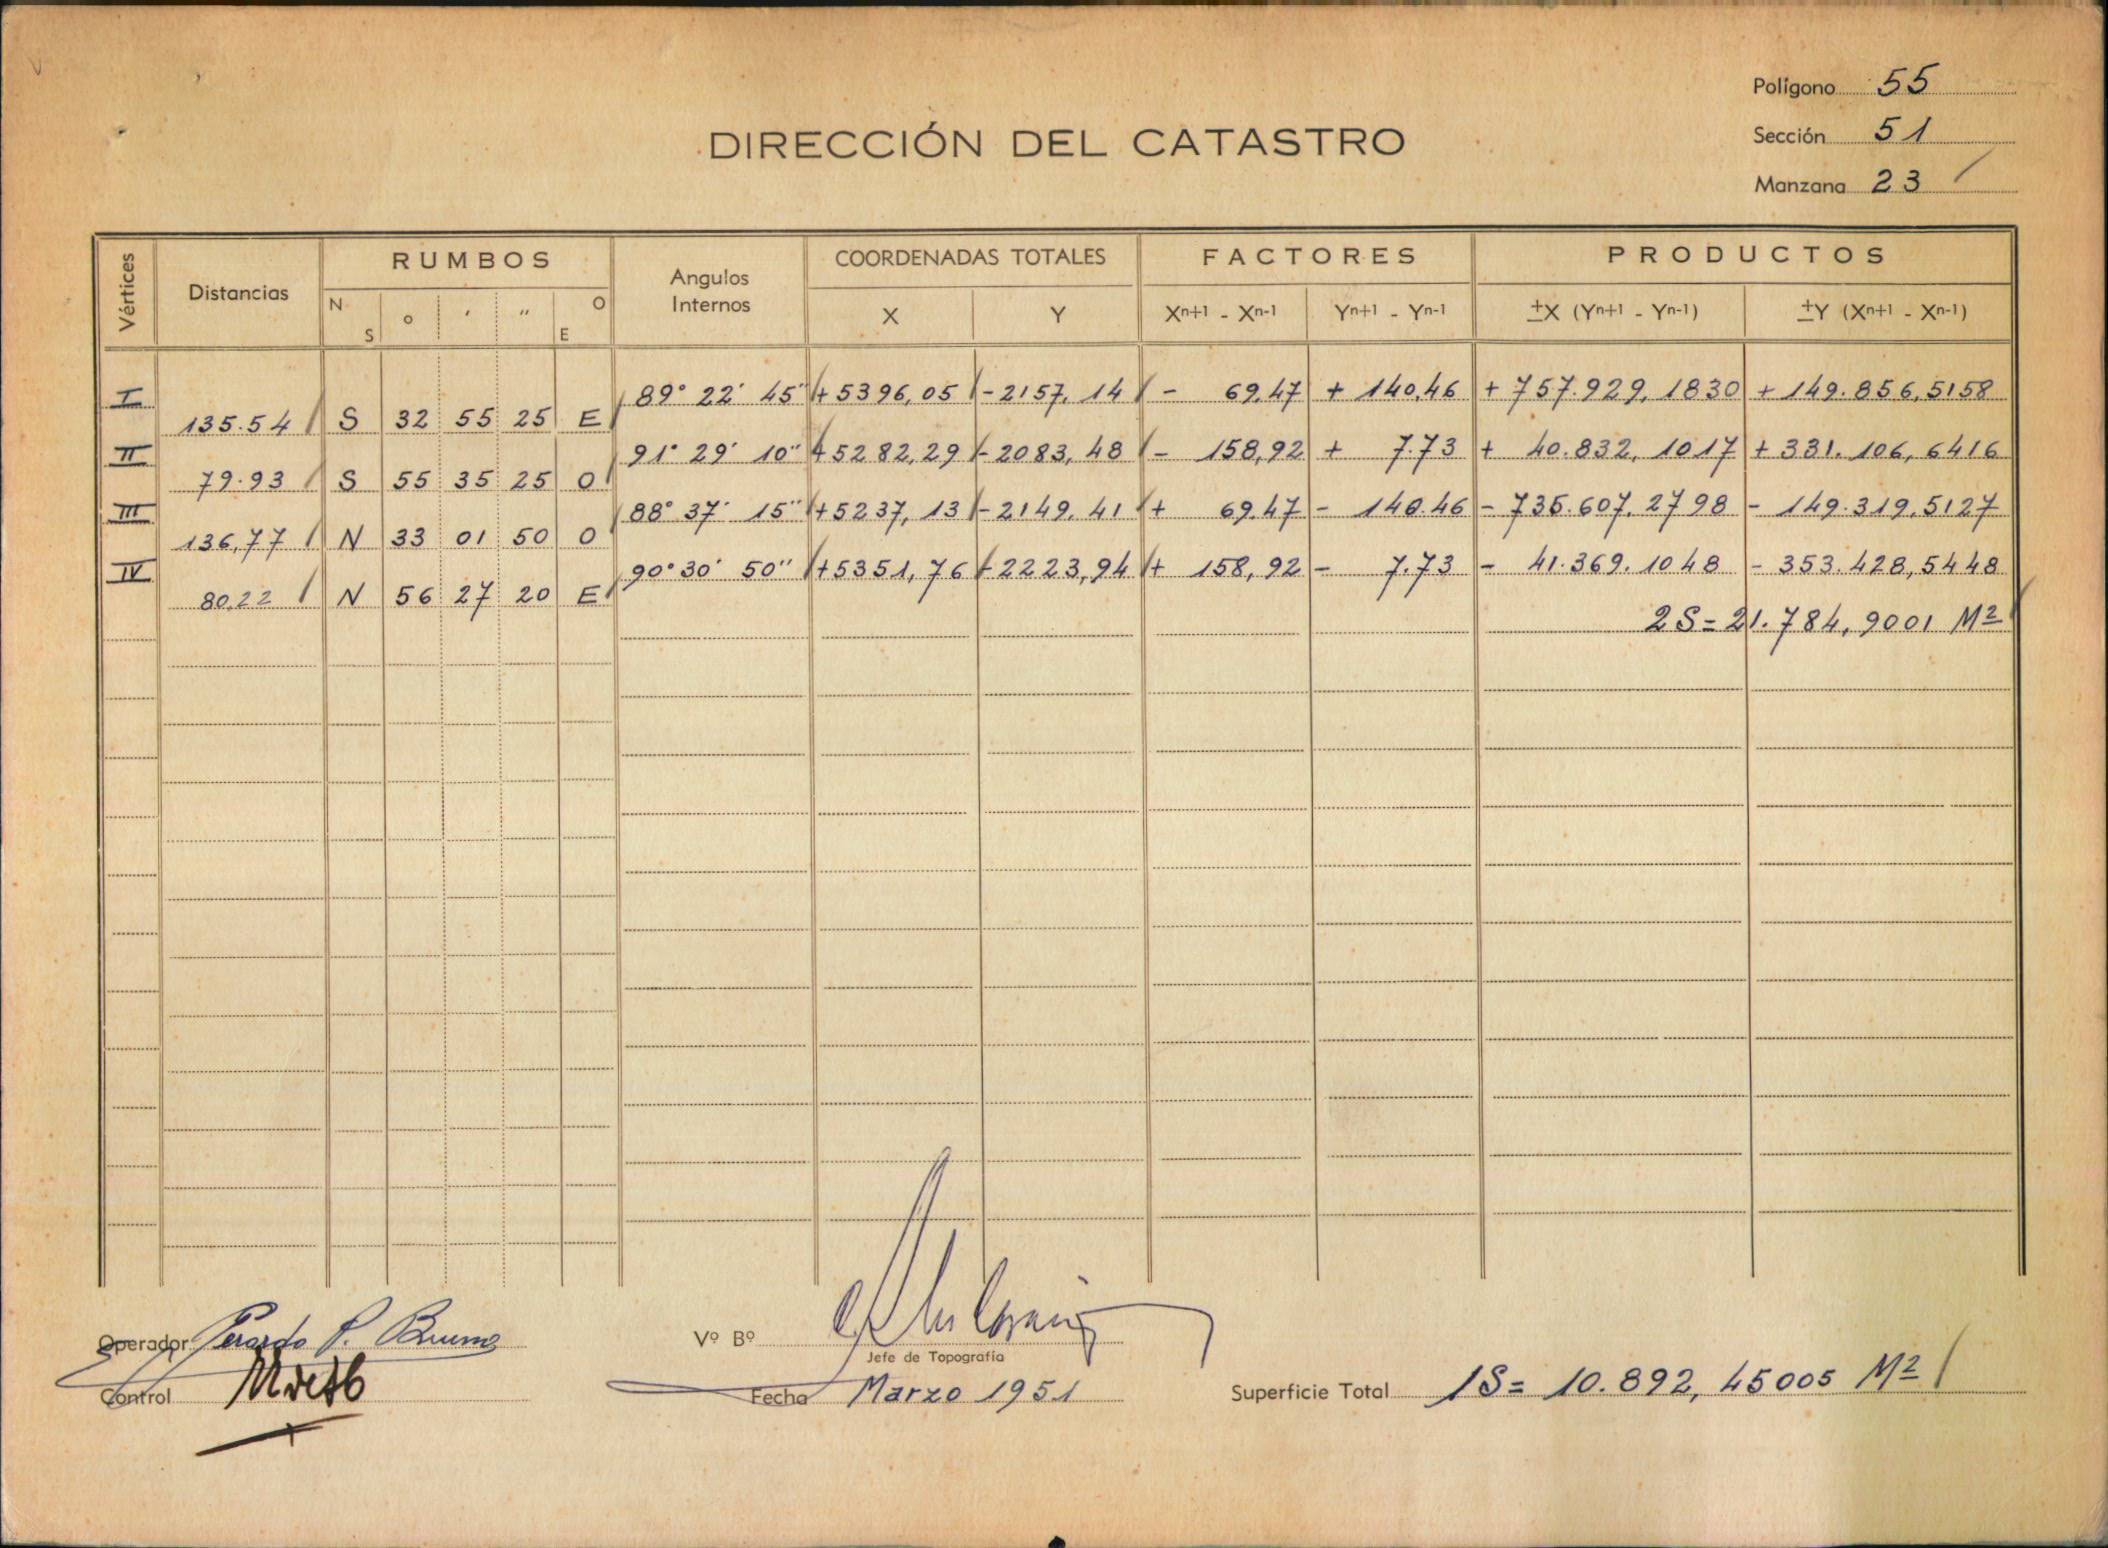 Polígono 55
DIRECCIÓN DEL CATASTRO
Sección 51
Manzana 23
Vértices Distancias RUMBOS Angulos Internos COORDENADAS TOTALES FACTORES PRODUCTOS
N S o ′ ″ O E X Y Xn+1 - Xn-1 Yn+1 - Yn-1 ±X (Yn+1 - Yn-1) ±Y (Xn+1 - Xn-1)
I 89° 22′ 45″ +5396,05 -2157,14 - 69,47 + 140,46 + 757.929,1830 + 149.856,5158
135.54 S 32 55 25 E
II 91° 29′ 10″ +5282,29 -2083,48 - 158,92 + 7.73 + 40.832,1017 + 331.106,6416
79.93 S 55 35 25 O
III 88° 37′ 15″ +5237,13 -2149.41 + 69.47 - 140.46 - 735.607.2798 - 149.319,5127
136,77 N 33 01 50 O
IV 90° 30′ 50″ +5351,76 -2223,94 + 158,92 - 7.73 - 41.369.1048 - 353.428,5448
80.22 N 56 27 20 E
2S = 21.784,9001 M2
Operador Gerardo P. Bruno
Vº Bº
Jefe de Topografía
Control
Fecha Marzo 1951
Superficie Total 1S = 10.892,45005 M2